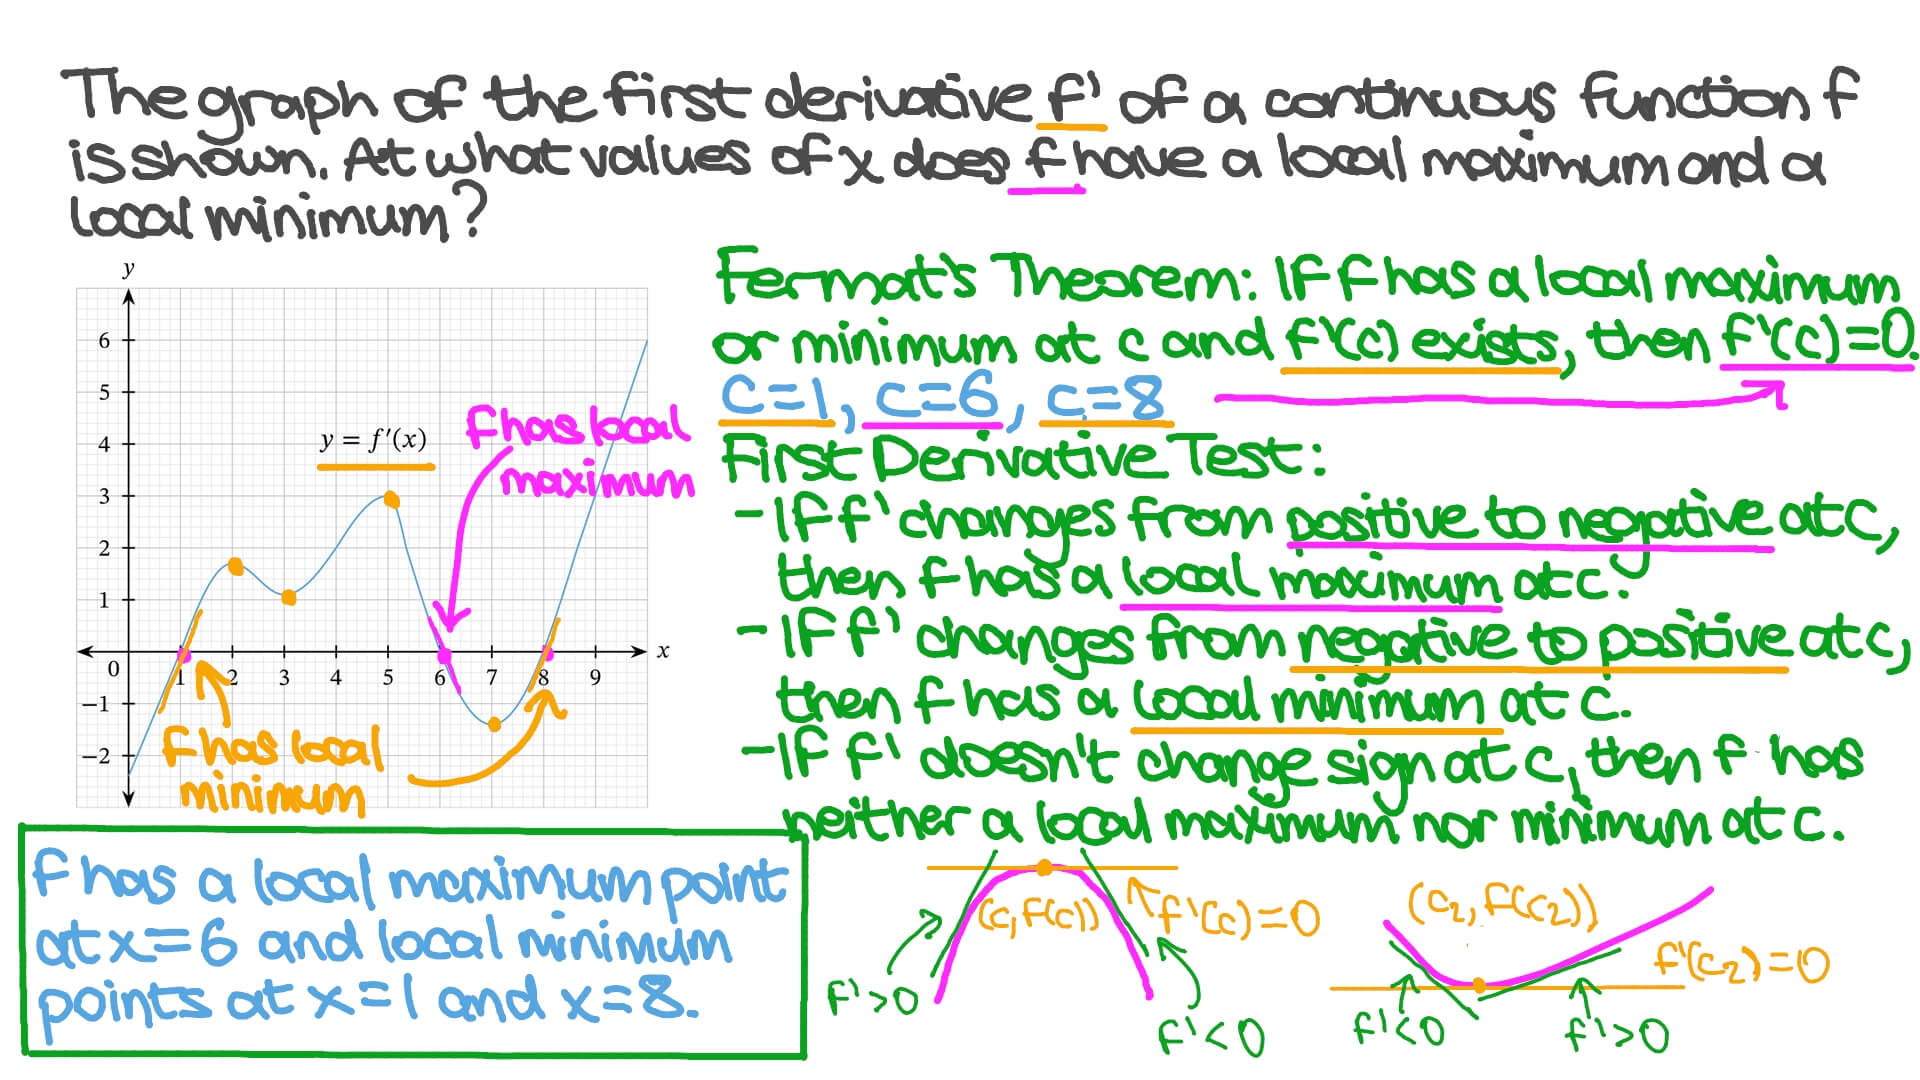 The graph of the first derivative f' of a continuous function f
is shown. At what values of x does f have a local maximum and a
local minimum?
y
6
5
4
3
2
1
0
−1
−2
1 2 3 4 5 6 7 8 9
x
y = f'(x)
f has local
maximum
f has local
minimum
Fermat's Theorem: If f has a local maximum
or minimum at c and f'(c) exists, then f'(c)=0.
c=1, c=6, c=8
First Derivative Test:
- If f' changes from positive to negative at c,
then f has a local maximum at c.
- If f' changes from negative to positive at c,
then f has a local minimum at c.
- If f' doesn't change sign at c, then f has
neither a local maximum nor minimum at c.
f has a local maximum point
at x=6 and local minimum
points at x=1 and x=8.
(c, f(c))
f'(c)=0
f'>0
f'<0
(c₂, f(c₂))
f'(c₂)=0
f'<0
f'>0